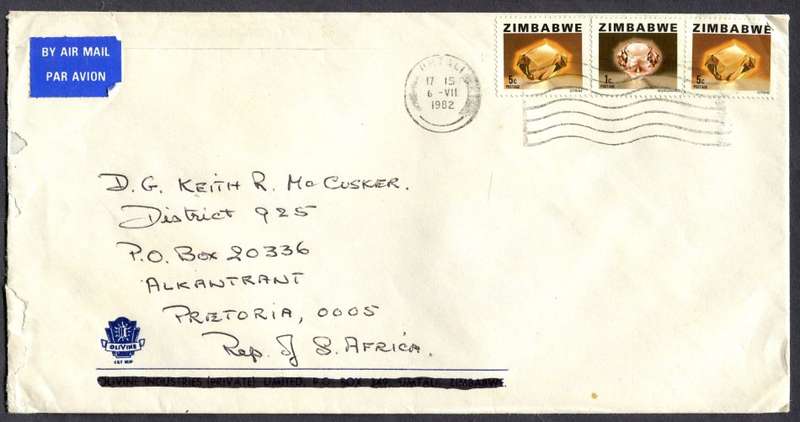 BY AIR MAIL
PAR AVION
UMTALI
17 15
6 -VII
1982
ZIMBABWE
5c
POSTAGE
CITRINE
ZIMBABWE
1c
POSTAGE
MORGANITE
ZIMBABWE
5c
POSTAGE
CITRINE
D.G. KEITH R. McCUSKER.
District 925
P.O. Box 20336
ALKANTRANT
PRETORIA, 0005
Rep. of S. AFRICA.
OLIVINE
OLIVINE INDUSTRIES (PRIVATE) LIMITED, P.O. BOX 249, UMTALI, ZIMBABWE.